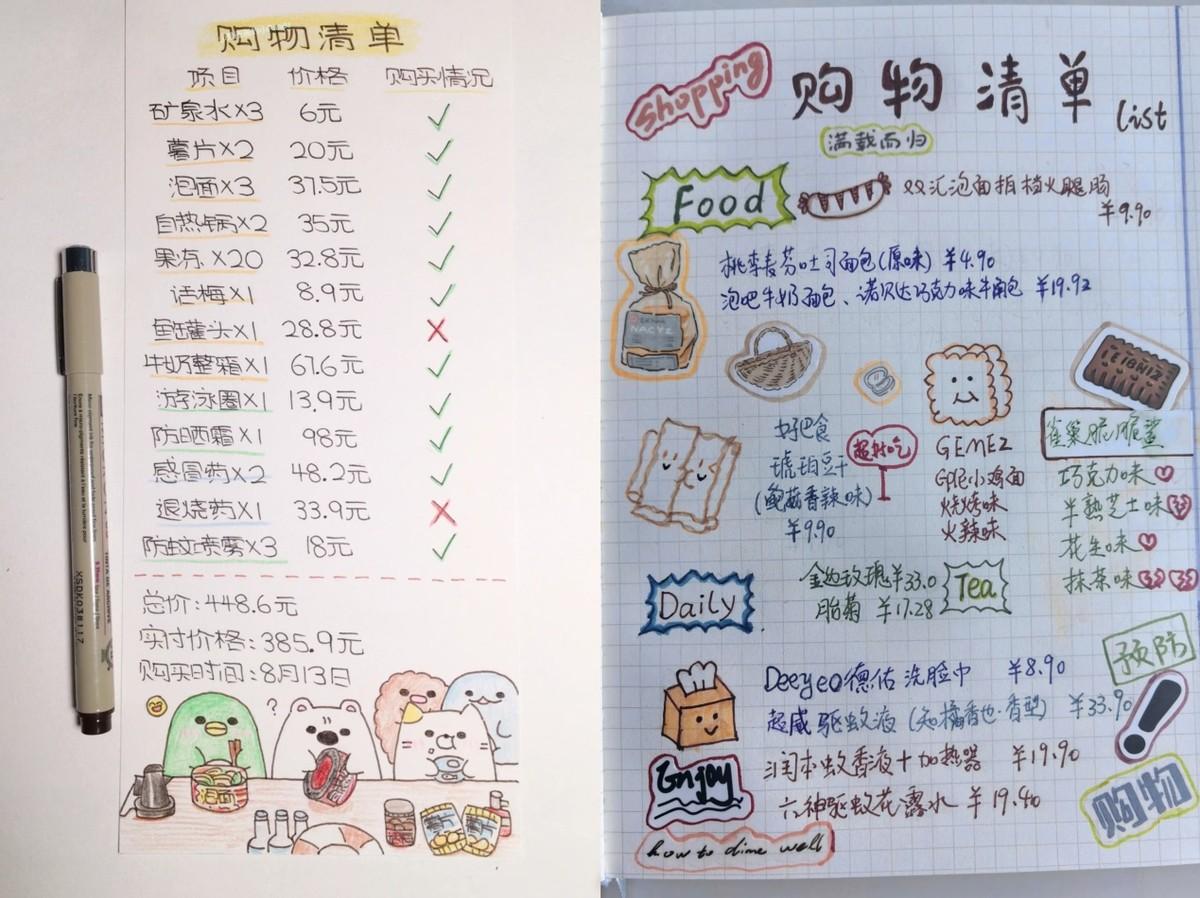 购物清单
项目 价格 购买情况
矿泉水×3 6元 ✓
薯片×2 20元 ✓
泡面×3 37.5元 ✓
自热锅×2 35元 ✓
果冻×20 32.8元 ✓
话梅×1 8.9元 ✓
鱼罐头×1 28.8元 ×
牛奶整箱×1 67.6元 ✓
游泳圈×1 13.9元 ✓
防晒霜×1 98元 ✓
感冒药×2 48.2元 ✓
退烧药×1 33.9元 ×
防蚊喷雾×3 18元 ✓
总价:448.6元
实付价格:385.9元
购买时间:8月13日
?
泡面
XSDK038117
shopping
购物清单 list
满载而归
Food
双汇泡面拍档火腿肠
¥9.90
桃李麦芬吐司面包(原味) ¥4.90
泡吧牛奶面包、诺贝达巧克力味牛角包 ¥19.92
NACYZ
LEIBNIZ
好巴食
琥珀豆干
(鲍菇香辣味)
¥9.90
超好吃
GEMEZ
小鸡面
烧烤味
火辣味
雀巢脆脆鲨
巧克力味
半熟芝士味
花生味
抹茶味
玫瑰 ¥33.0
胎菊 ¥17.28
Tea
Daily
预防
Deeyeo德佑洗脸巾 ¥8.90
超威驱蚊液 ¥33.90
润本蚊香液+加热器 ¥19.90
六神驱蚊花露水 ¥19.40
Enjoy
购物
how to dime well